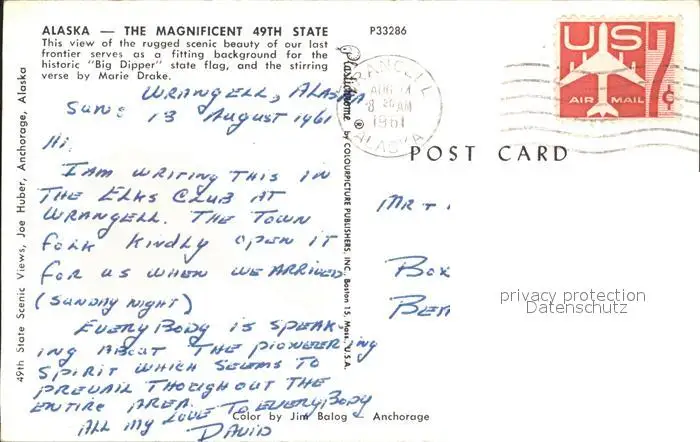 ALASKA — THE MAGNIFICENT 49TH STATE
This view of the rugged scenic beauty of our last
frontier serves as a fitting background for the
historic "Big Dipper" state flag, and the stirring
verse by Marie Drake.
P33286
WRANGELL, ALASKA
SUN. 13 AUGUST 1961
HI,
I AM WRITING THIS IN
THE ELKS CLUB AT
WRANGELL. THE TOWN
FOLK KINDLY OPEN IT
FOR US WHEN WE ARRIVED
(SUNDAY NIGHT)
EVERYBODY IS SPEAK-
ING ABOUT THE PIONEERING
SPIRIT WHICH SEEMS TO
PREVAIL THOUGHOUT THE
ENTIRE AREA.
ALL MY LOVE TO EVERYBODY
DAVID
49th State Scenic Views, Joe Huber, Anchorage, Alaska
Plastichrome ® by COLOURPICTURE PUBLISHERS, INC., Boston 15, Mass., U.S.A.
Color by Jim Balog - Anchorage
WRANGELL
AUG 14
8 AM
1961
ALASKA
US
7¢
AIR MAIL
POST CARD
MR +
BOX
BER
privacy protection
Datenschutz